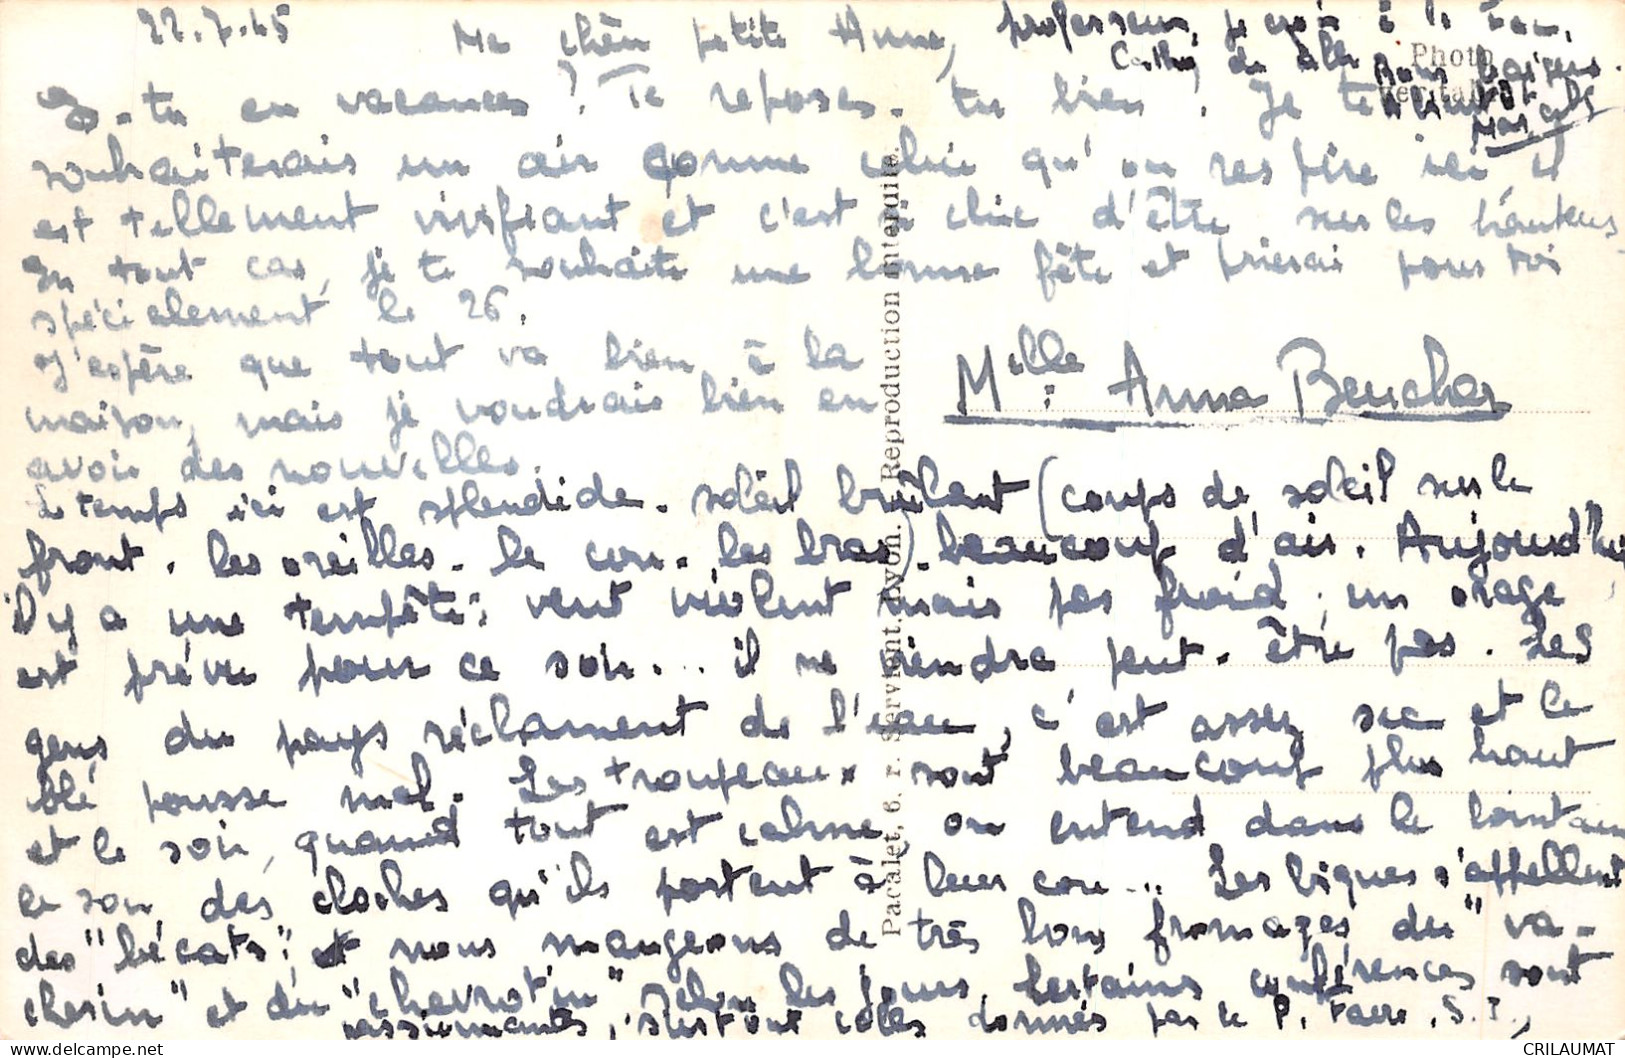 22.7.45
Ma chère petite Anne,
Es-tu en vacances ? Te reposes-tu bien ? Je te
souhaiterais un air comme celui qu'on respire ici il
est tellement vivifiant et c'est si chic d'être sur les hauteurs.
En tout cas, je te souhaite une bonne fête et prierai pour toi
spécialement le 26.
J'espère que tout va bien à la
maison, mais je voudrais bien en
avoir des nouvelles.
Le temps ici est splendide. soleil brûlant (coups de soleil sur le
front. les oreilles. le cou. les bras). beaucoup d'air. Aujourd'hui
il y a une tempête; vent violent mais pas froid; un orage
est prévu pour ce soir... il ne viendra peut-être pas. Les
gens du pays réclament de l'eau, c'est assez sec et le
blé pousse mal. Les troupeaux sont beaucoup plus haut
et le soir, quand tout est calme, on entend dans le lointain
le son des cloches qu'ils portent à leur cou... Les biques s'appellent
des "bécats"; et nous mangeons de très bons fromages du "va-
cherin" et du "chevrotin" selon les jours. Certaines conférences sont
passionnantes, surtout celles données par le P. Favre. S.J.,
professeur, je crois à la
Catho de Lille
Bons baisers
Mlle: Anna Beucher
Photo
véritable
Pacalet, 6, r. Servient, Lyon. Reproduction interdite.
CRILAUMAT